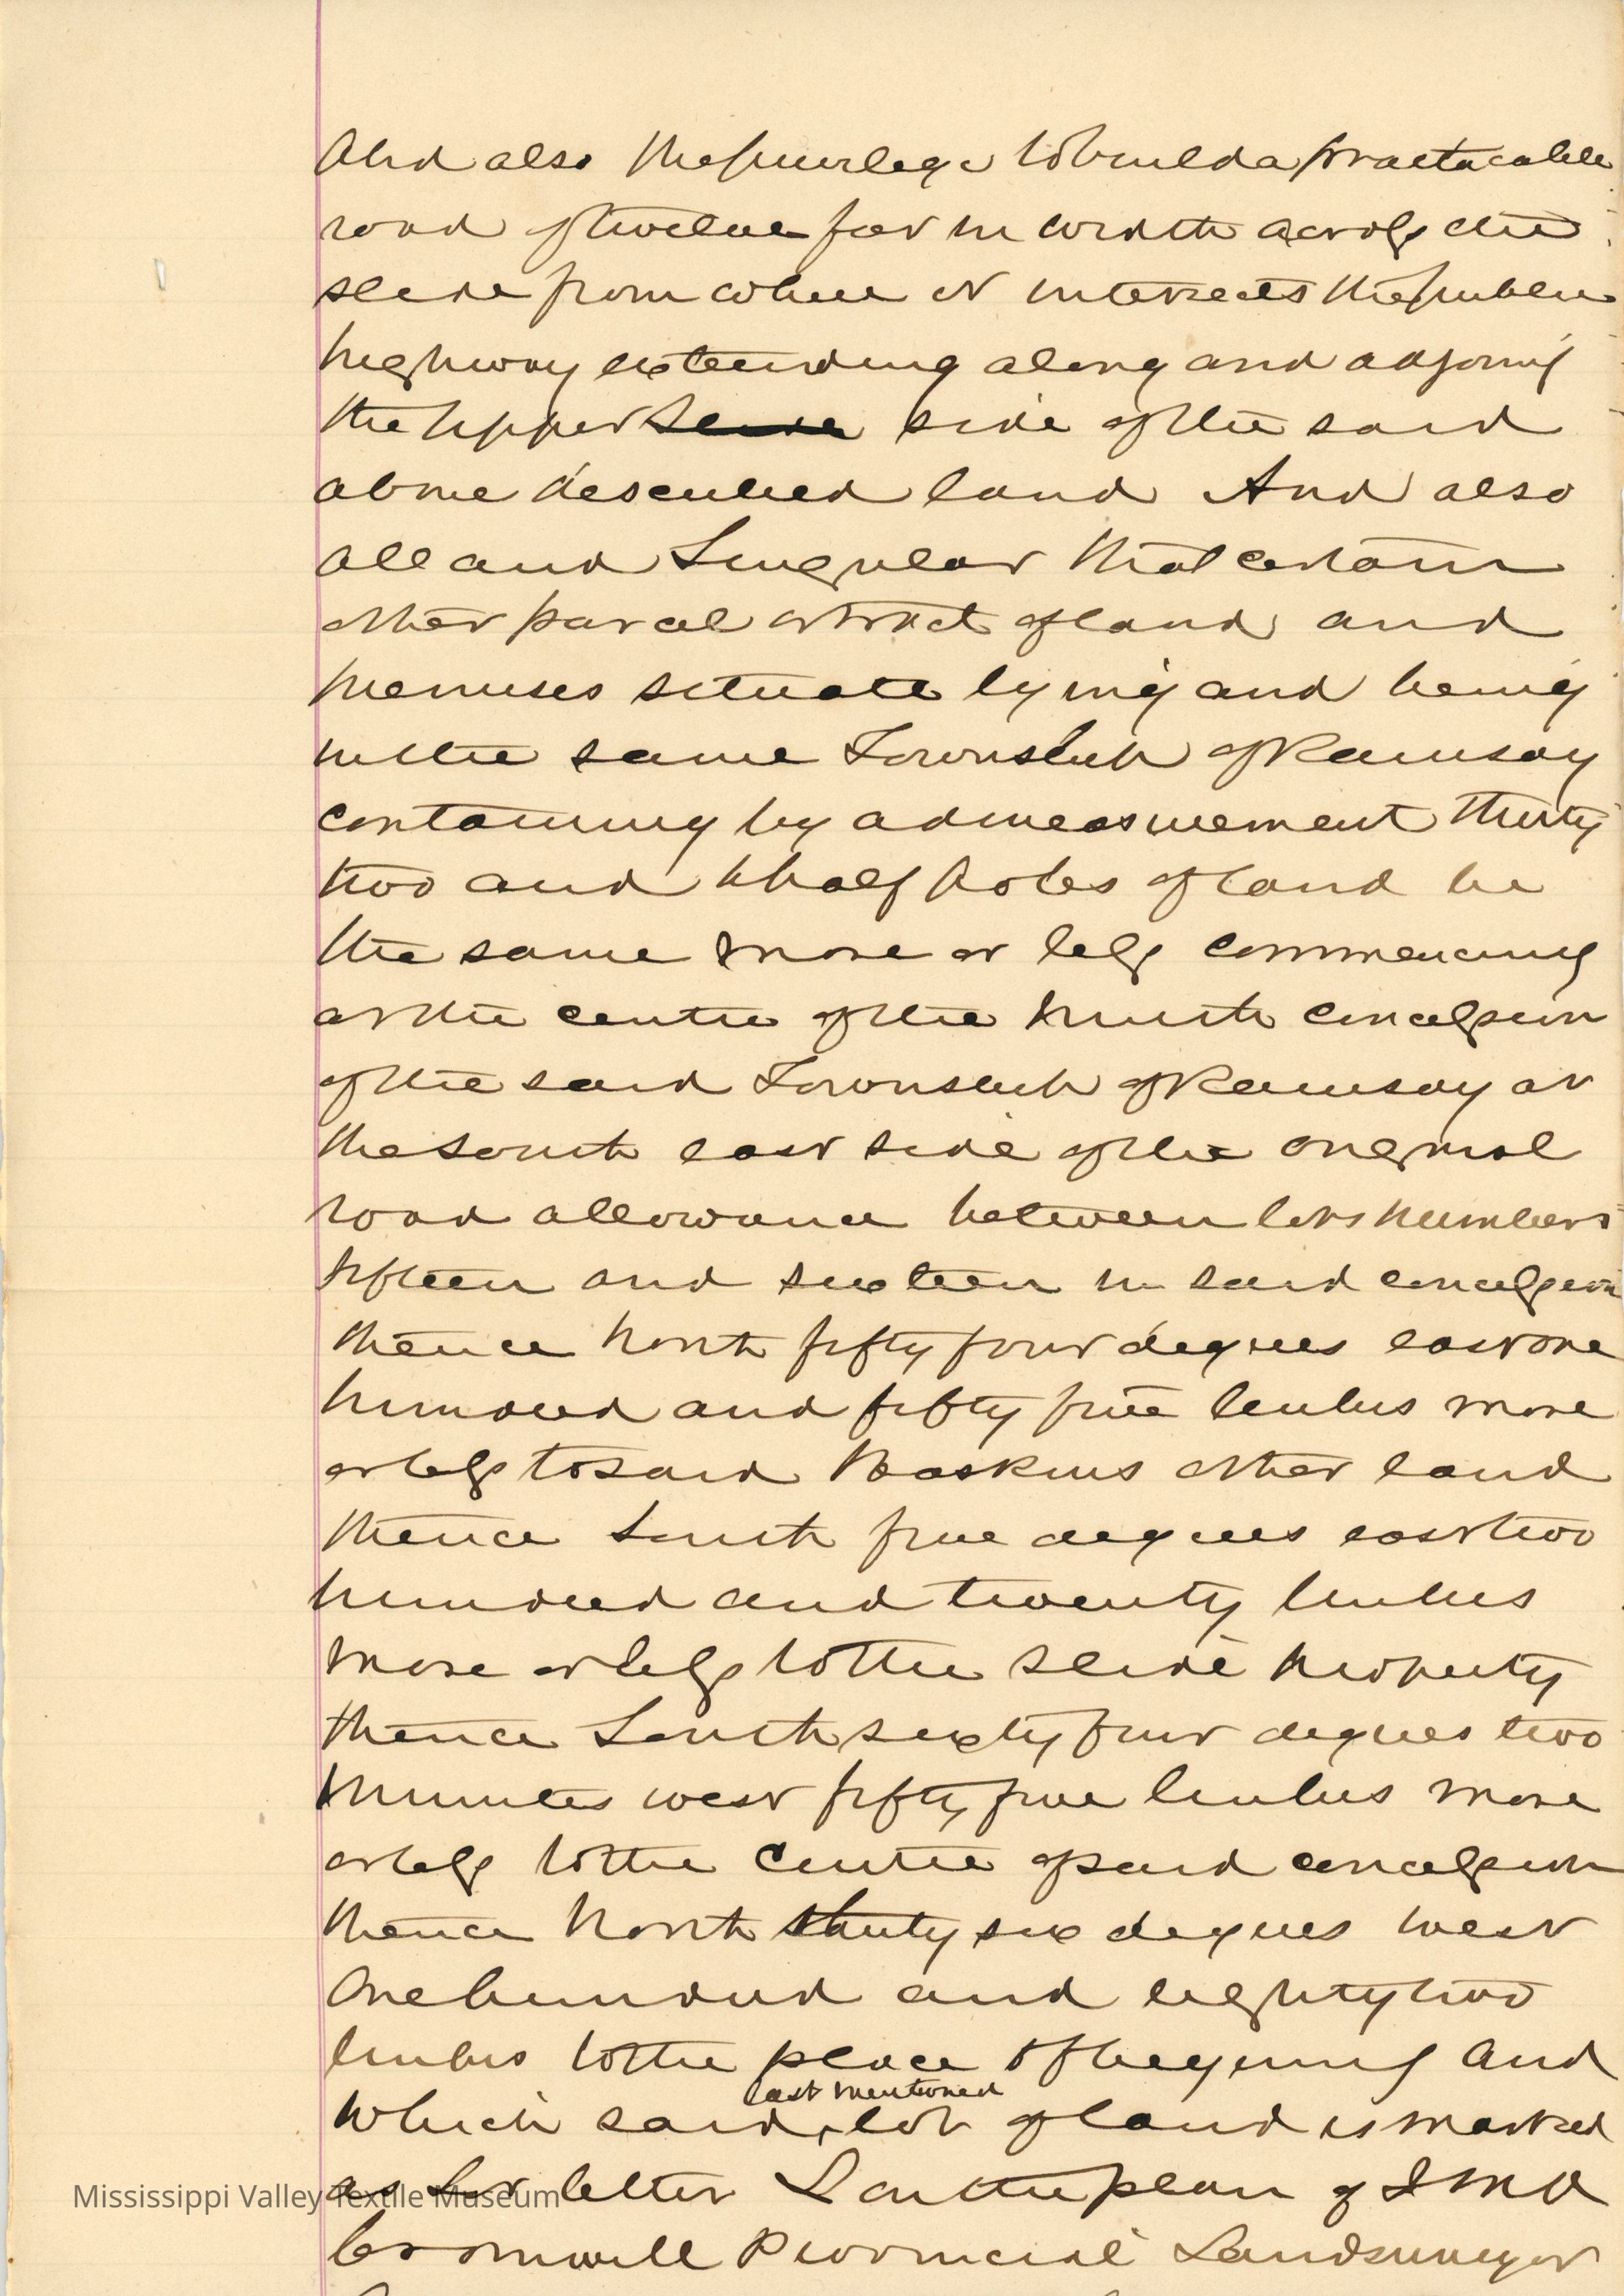 And also the privilege to build a practacable
road of twelve feet in width across the
slide from where it intersects the public
highway extending along and adjoing
the upper slide side of the said
above described land And also
all and Singular that certain
other parcel or tract of land and
premises situate lying and being
in the same Township of Ramsay
containing by admeasurement thirty
two and half Poles of land be
the same more or less commencing
at the centre of the ninth concession
of the said Township of Ramsay at
the south east side of the original
road allowance between lots numbers
fifteen and sixteen in said concession
thence North fifty four degrees east one
hundred and fifty five links more
or less to said Baskins other land
thence South five degrees east two
hundred and twenty links
more or less to the slide property
thence South sixty four degrees two
minutes west fifty five links more
or less to the Centre of said concession
thence North thirty six degrees west
One hundred and eighty two
links to the place of begining and
last mentioned
which said lot of land is marked
as Lot letter L on the plan of J M O
Cromwell Provincial Landsurveyor
Mississippi Valley Textile Museum